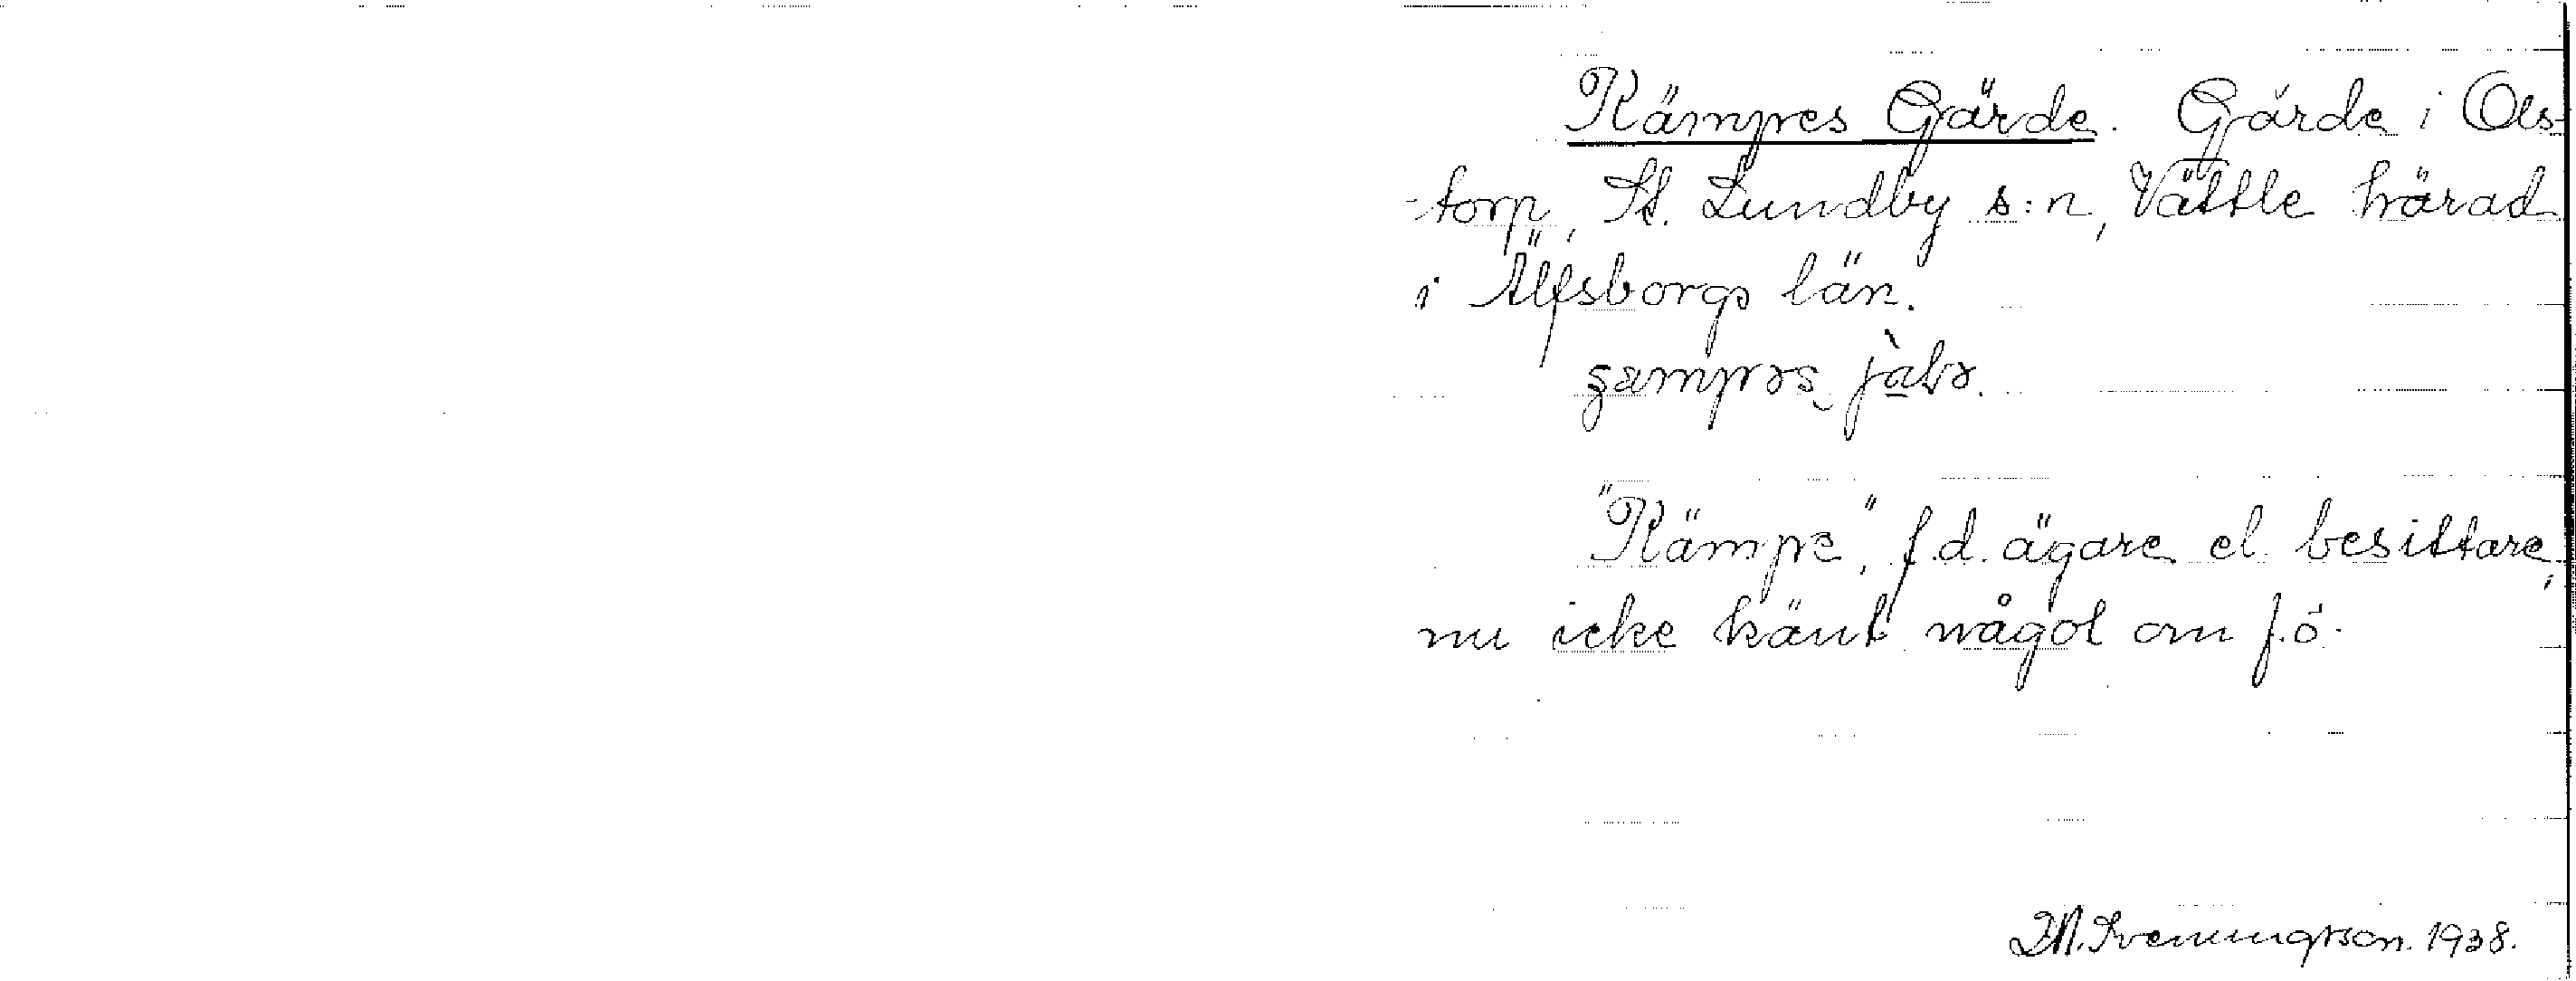 Kämpes Gärde. Gärde i Ols-
torp, St. Lundby s:n, Vättle härad
i Älfsborgs län.

"Kämpe", f.d. ägare el. besittare,
nu icke känt något om f.ö.
M. Sveningsson. 1938.